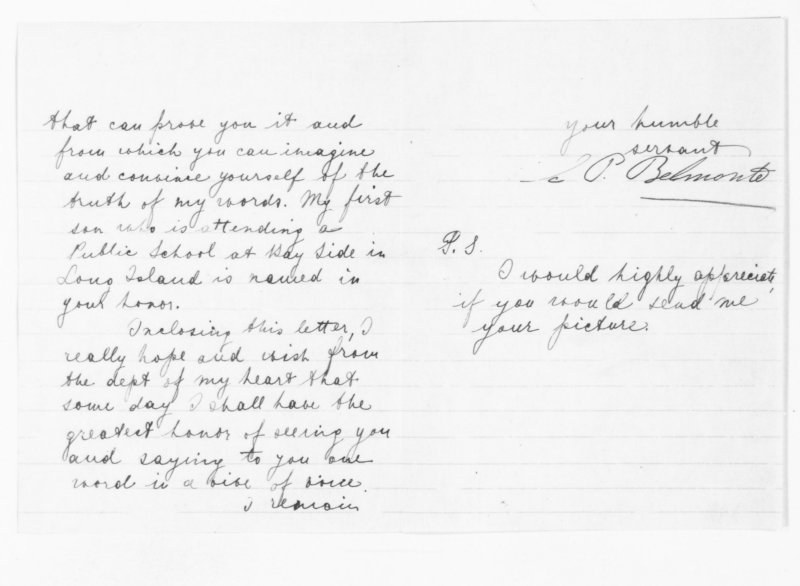 that can prove you it and
from which you can imagine
and convince yourself of the
truth of my words. My first
son who is attending a
Public School at Bay Side in
Long Island is named in
your honor.
Inclosing this letter, I
really hope and wish from
the dept of my heart that
some day I shall have the
greatest honor of seeing you
and saying to you one
word in a vive of voice.
I remain
your humble
servant
P. Belmonte
P. S.
I would highly appreciate,
if you would send me
your picture.